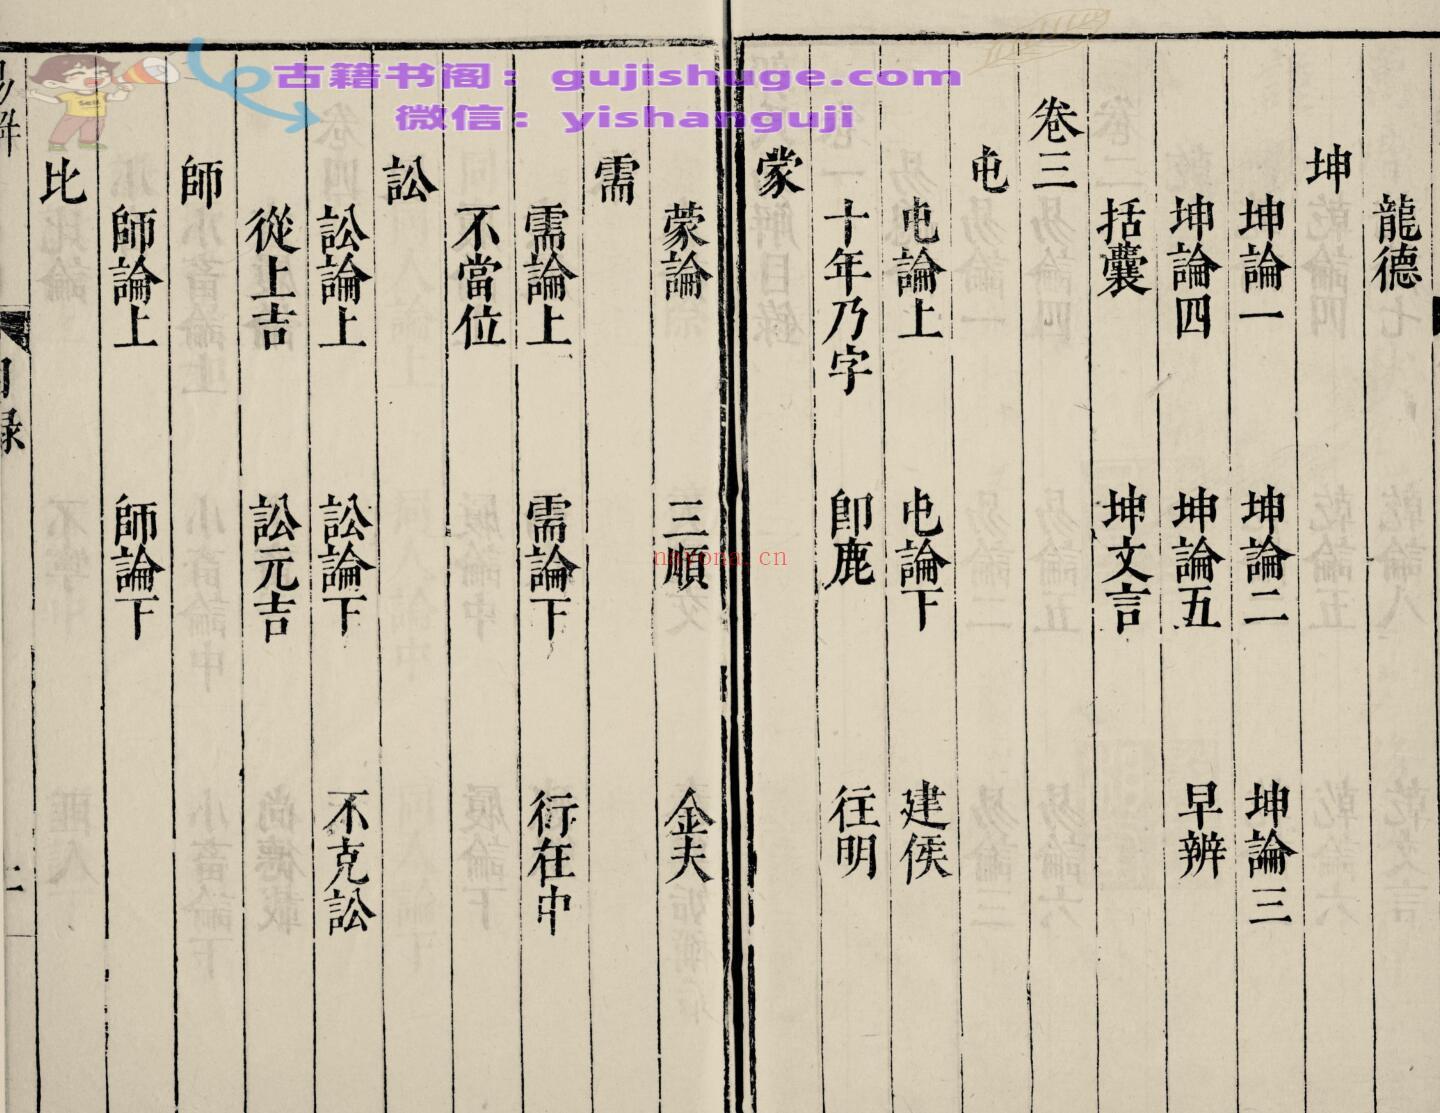 古籍书阁：gujishuge.com
微信：yishanguji
龍德
坤
坤論一 坤論二 坤論三
坤論四 坤論五 早辨
括囊 坤文言
卷三
屯
屯論上 屯論下 建侯
十年乃字 即鹿 往明
蒙
蒙論 三順 金夫
需
需論上 需論下 衍在中
不當位
訟
訟論上 訟論下 不克訟
從上吉 訟元吉
師
師論上 師論下
比
目錄
nayona.cn